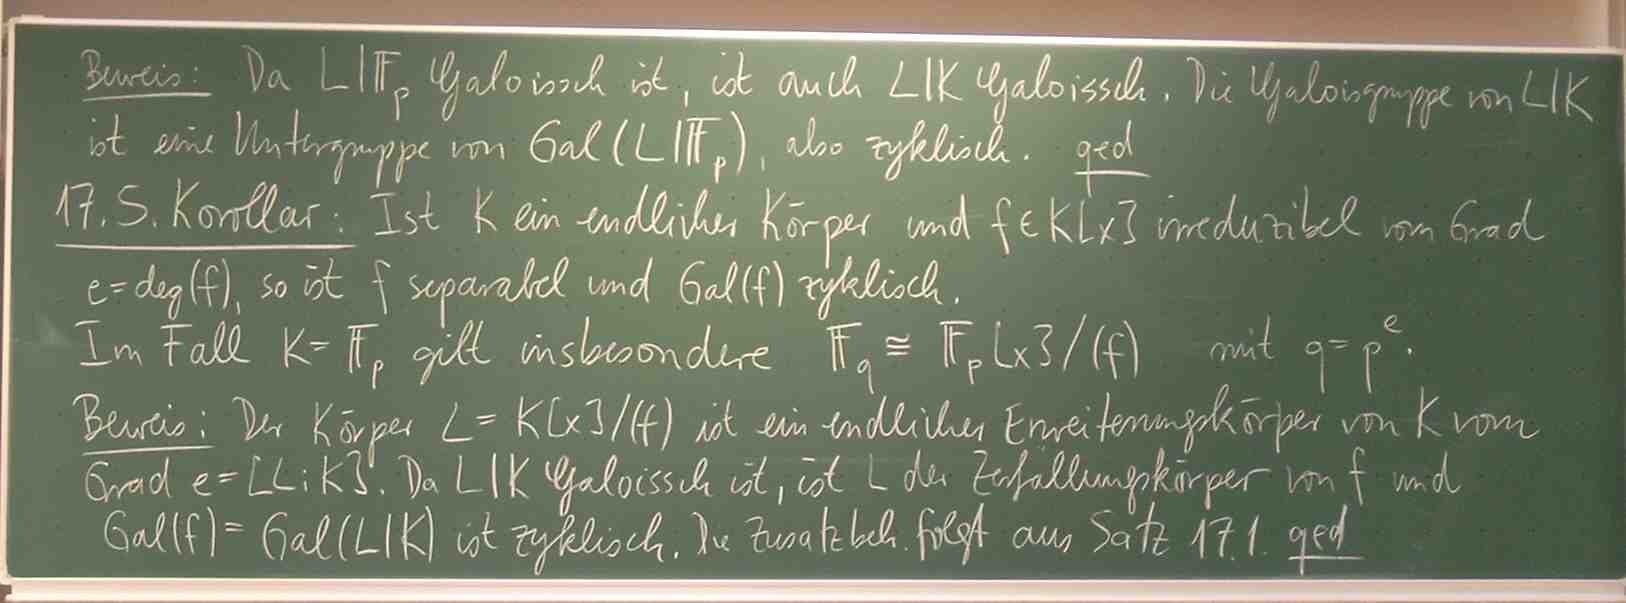 Beweis: Da L|𝔽_p Galoissch ist, ist auch L|K Galoissch. Die Galoisgruppe von L|K
ist eine Untergruppe von Gal(L|𝔽_p), also zyklisch. qed
17.5. Korollar: Ist K ein endlicher Körper und f∈K[x] irreduzibel vom Grad
e=deg(f), so ist f separabel und Gal(f) zyklisch.
Im Fall K=𝔽_p gilt insbesondere 𝔽_q ≅ 𝔽_p[x]/(f) mit q=p^e.
Beweis: Der Körper L=K[x]/(f) ist ein endlicher Erweiterungskörper von K vom
Grad e=[L:K]. Da L|K Galoissch ist, ist L der Zerfällungskörper von f und
Gal(f)=Gal(L|K) ist zyklisch. Die Zusatzbeh. folgt aus Satz 17.1. qed